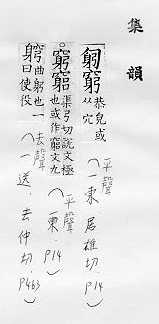 集韻
匑窮恭皃或从穴(平聲 一東 居雄切 P14)
。竆窮渠弓切說文極也或作窮文九(平聲 一東. P14)
窮曲躬也一曰使役(去聲 一送. 去仲切. P463)